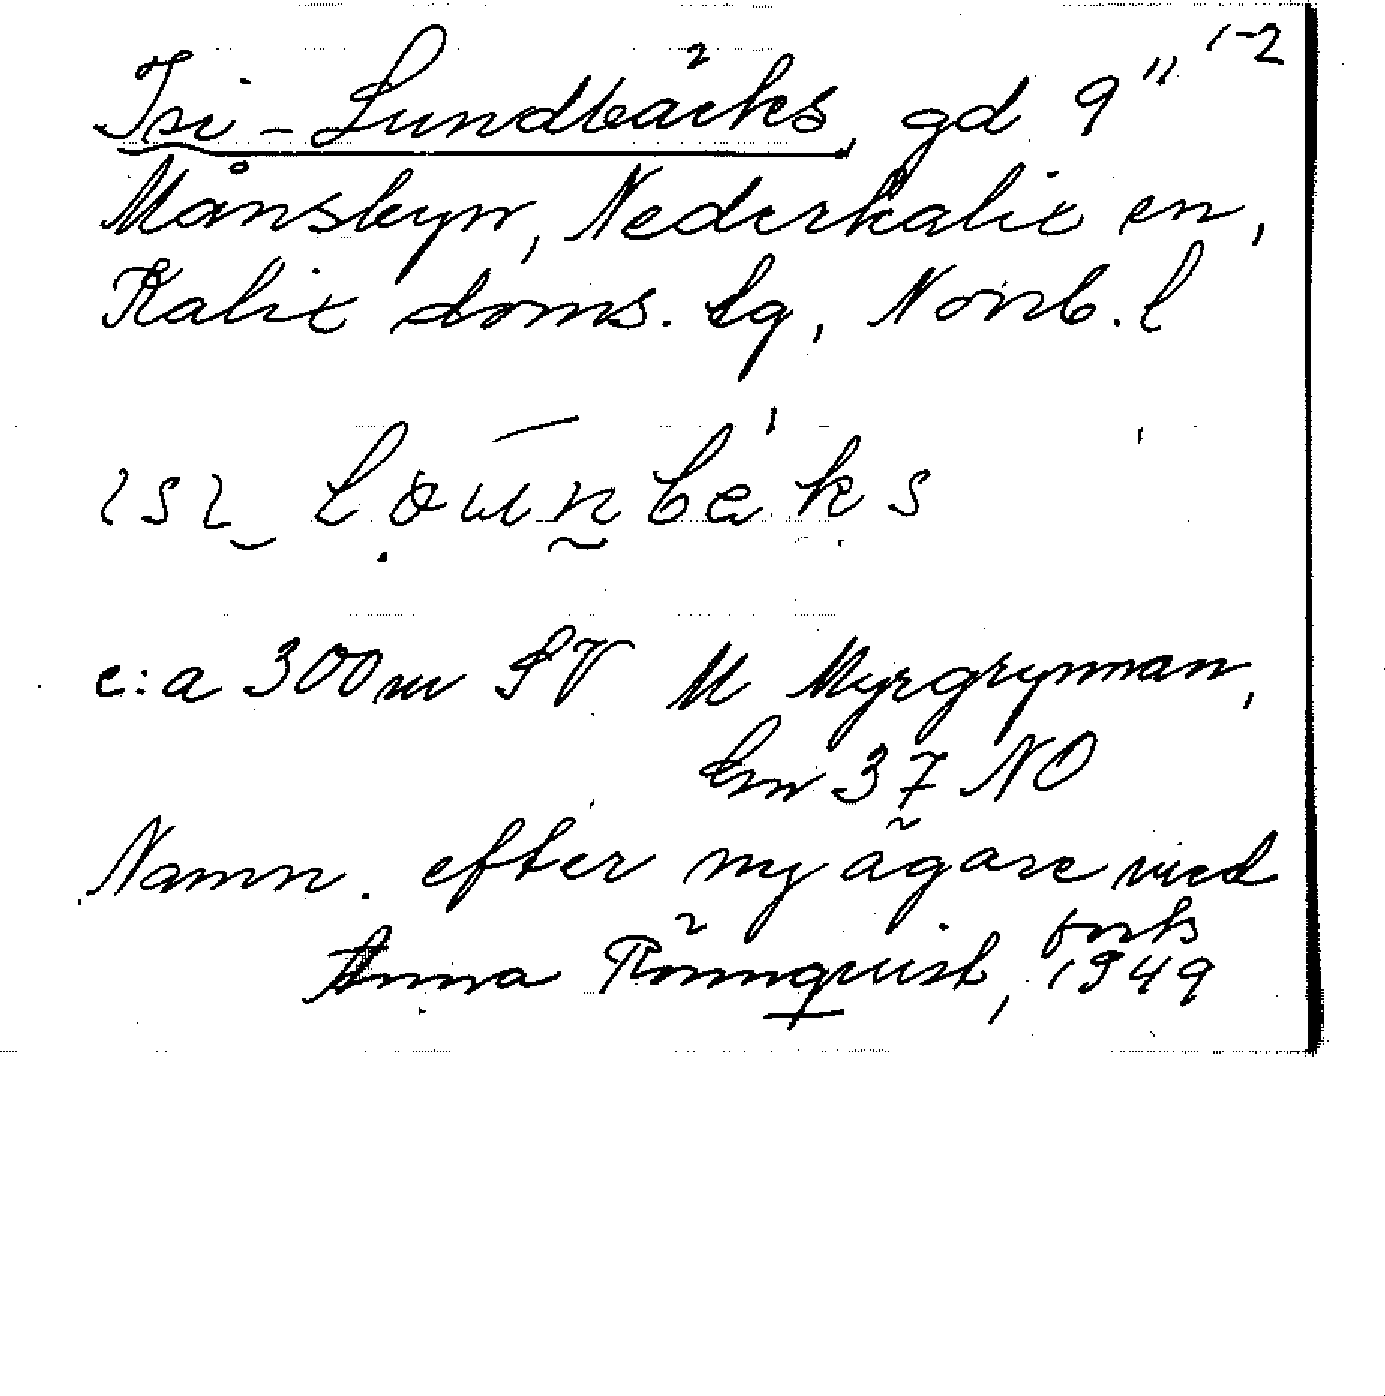 Isi-Lundbäcks, gd 9" 1-2
Månsbyn, Nederkalix sn,
Kalix doms. tg, Norrb. l
c:a 300 m SV M Myrgrynnan,
Em 37 NO
Namn. efter ny ägare med
Anna Rönnquist, forts
1949